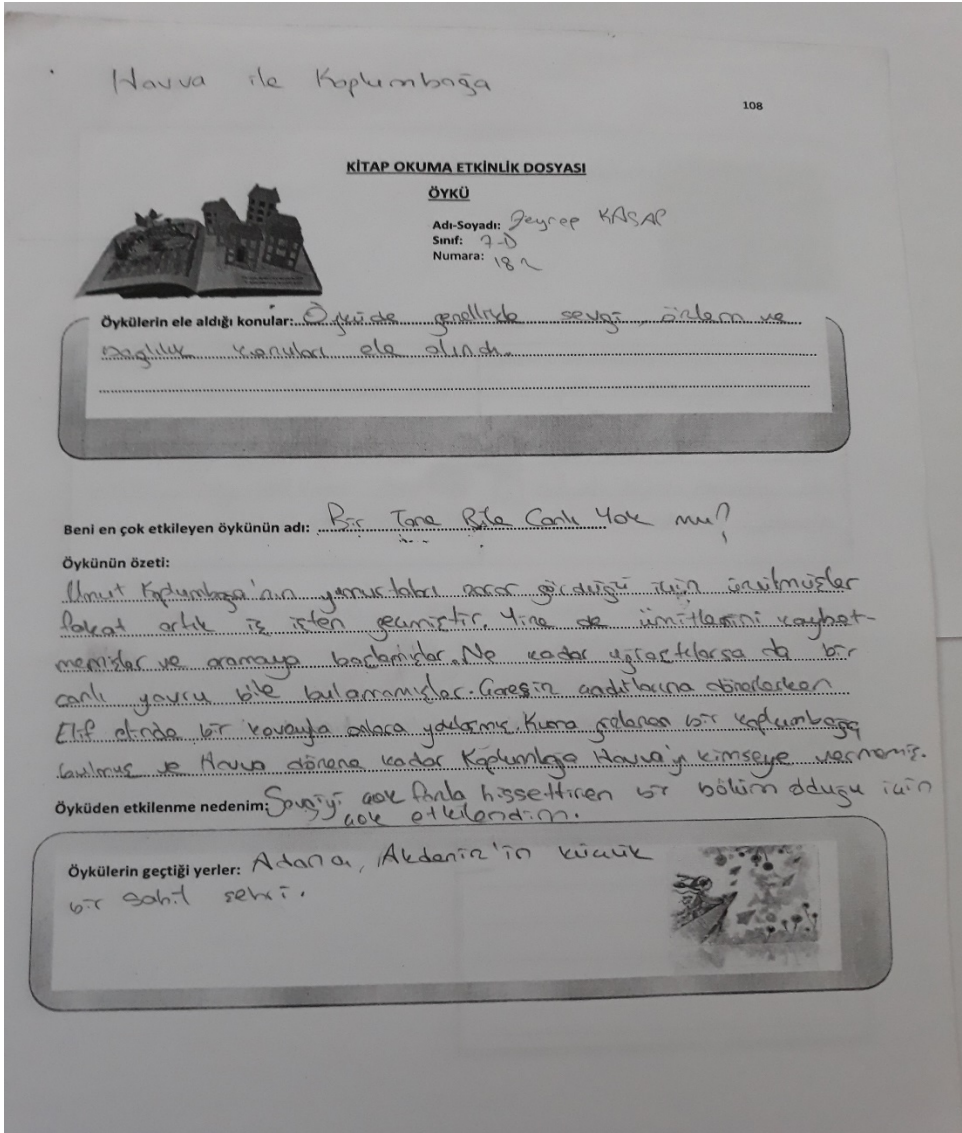 Havva ile Kaplumbağa
108
KİTAP OKUMA ETKİNLİK DOSYASI
ÖYKÜ
Adı-Soyadı: Zeynep KASAP
Sınıf: 7-D
Numara: 182
Öykülerin ele aldığı konular: Öyküde genellikle sevgi, özlem ve
bağlılık konuları ele alındı.
Beni en çok etkileyen öykünün adı: Bir Tane Bile Canlı Yok mu?
Öykünün özeti:
Umut Kaplumbağa'nın yumurtaları zarar gördüğü için üzülmüşler
fakat artık iş işten geçmiştir. Yine de ümitlerini kaybet-
memişler ve aramaya başlamışlar. Ne kadar uğraştılarsa da bir
canlı yavru bile bulamamışlar. Çaresiz çadırlarına dönerlerken
Elif elinde bir kovayla onlara yaklaşmış. Kuma gelenen bir kaplumbağa
bulmuş ve Havva dönene kadar Kaplumbağa Havva'yı kimseye vermemiş.
Öyküden etkilenme nedenim: Sevgiyi çok fazla hissettiren bir bölüm olduğu için
çok etkilendim.
Öykülerin geçtiği yerler: Adana, Akdeniz'in küçük
bir sahil şehri.